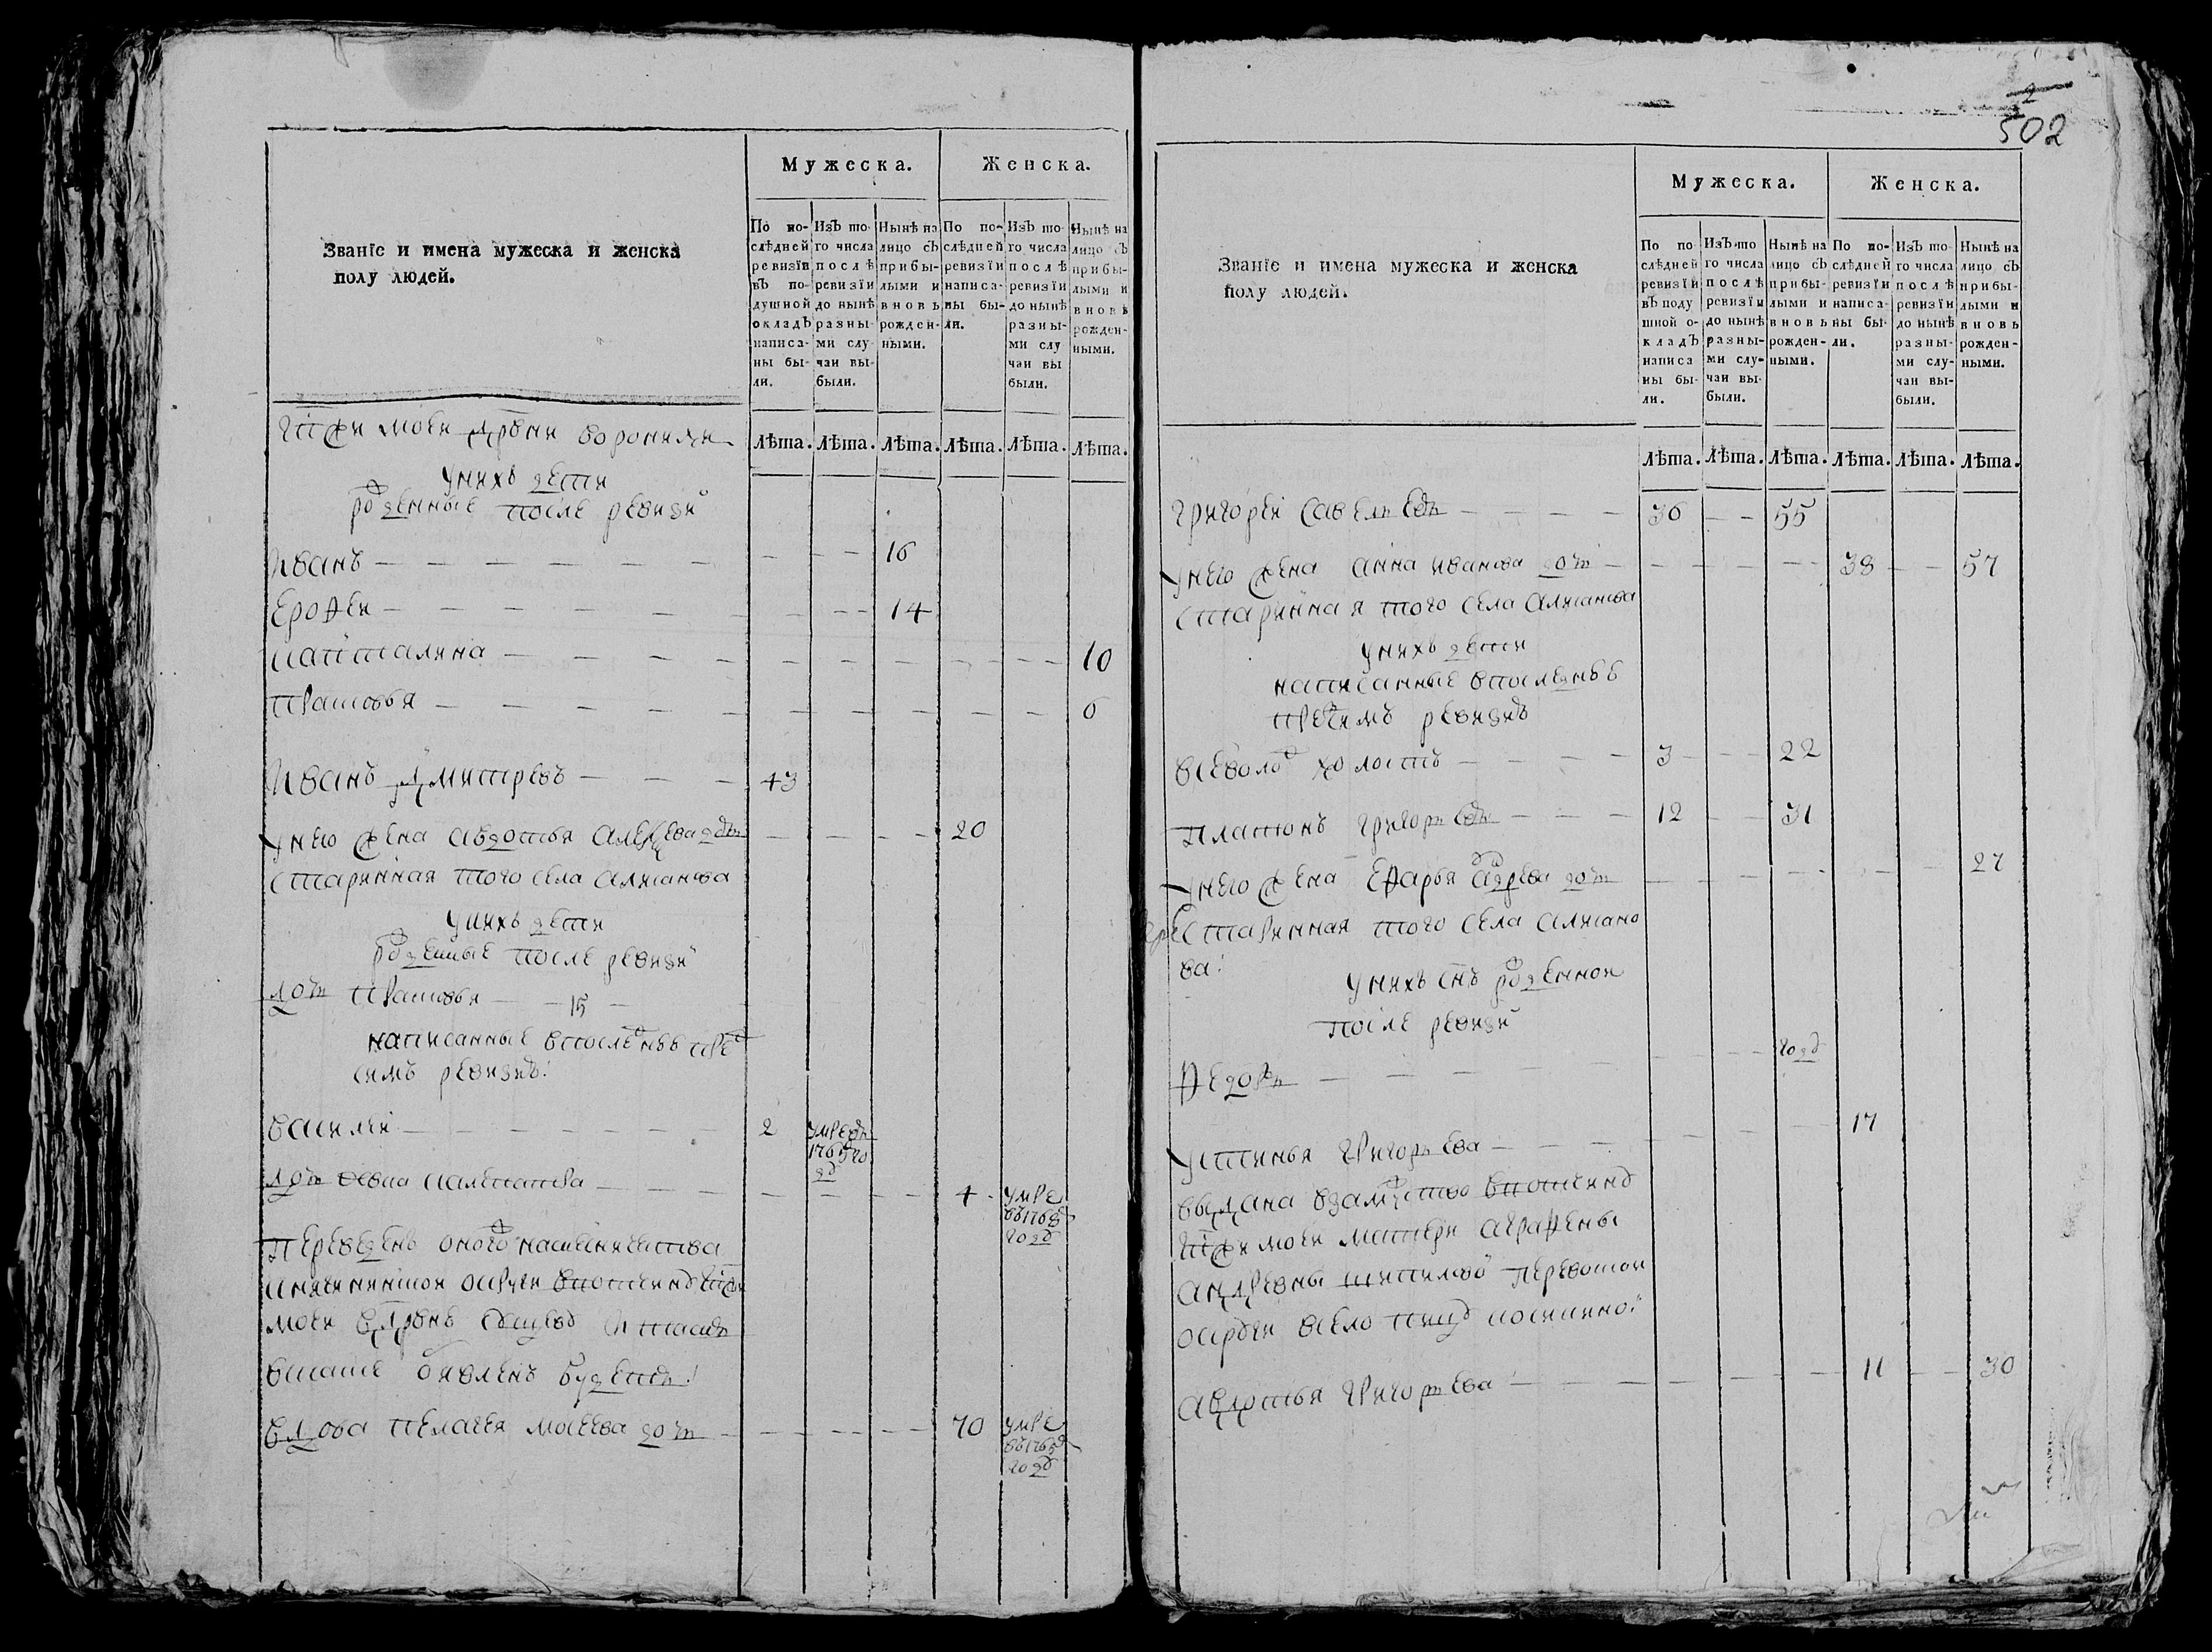 Мужеска.
Женска.
Званїе и имена мужеска и женска
полу людей.
По по-
слѣдней
ревизїи
въ по-
душной
окладъ
написа-
ны бы-
ли.
Изъ то-
го числа
послѣ
ревизїи
до нынѣ
разны-
ми слу-
чаи вы-
были.
Нынѣ на
лицо съ
прибы-
лыми и
вновь
рожден-
ными.
По по-
слѣдней
ревизїи
написа-
ны бы-
ли.
Изъ то-
го числа
послѣ
ревизїи
до нынѣ
разны-
ми слу
чаи вы
были.
Нынѣ на
лицо съ
прибы-
лыми и
вновь
рожден-
ными.
лѣта. лѣта. лѣта. лѣта. лѣта. лѣта.
моеи
унихъ дети
рожденные после ревизи
Иванъ 16
Ерофеи 14
Капталина 10
Прасковья 6
Иванъ Дмитревъ 43
унего жена Авдотья дочь 20
старинная того села
унихъ дети
рожденные после ревизи
дочь Прасковья 15
написанные впоследней пред
симъ ревизиі
василеи 2 умре
1765 го
ду
дочь девка 4 умре
въ1768
году
Переведенъ оного наместничества
округи
моеи
обявленъ будетъ
вдова Пелагея Мосеева дочь 70 умре
въ1765
году
502
Мужеска.
Женска.
Званїе и имена мужеска и женска
полу людей.
По по
слѣдней
ревизїи
въ поду
шной о-
кладъ
написа
ны бы-
ли.
Изъ то
го числа
послѣ
ревизїи
до нынѣ
разны-
ми слу-
чаи вы-
были.
Нынѣ на
лицо съ
прибы-
лыми и
вновь
рожден-
ными.
По по-
слѣдней
ревизїи
написа-
ны бы-
ли.
Изъ то-
го числа
послѣ
ревизїи
до нынѣ
разны-
ми слу-
чаи вы-
были.
Нынѣ на
лицо съ
прибы-
лыми и
вновь
рожден-
ными.
лѣта. лѣта. лѣта. лѣта. лѣта. лѣта.
Григореи Савельевъ 36 55
унего жена Анна Иванова дочь 38 57
старинная того села
унихъ дети
написанные впоследней
предсимъ ревизиі
Всеволодъ холостъ 3 22
Платонъ Григорьевъ 12 31
унего жена дочь 27
старинная того села
ва
унихъ сынъ рожденнои
после ревизи
Федоръ году
Устинья Григорьева 17
выдана взамужство вотчину
моеи матери Аграфены
Андревны
округи всело
Авдотья Григорьева 11 30